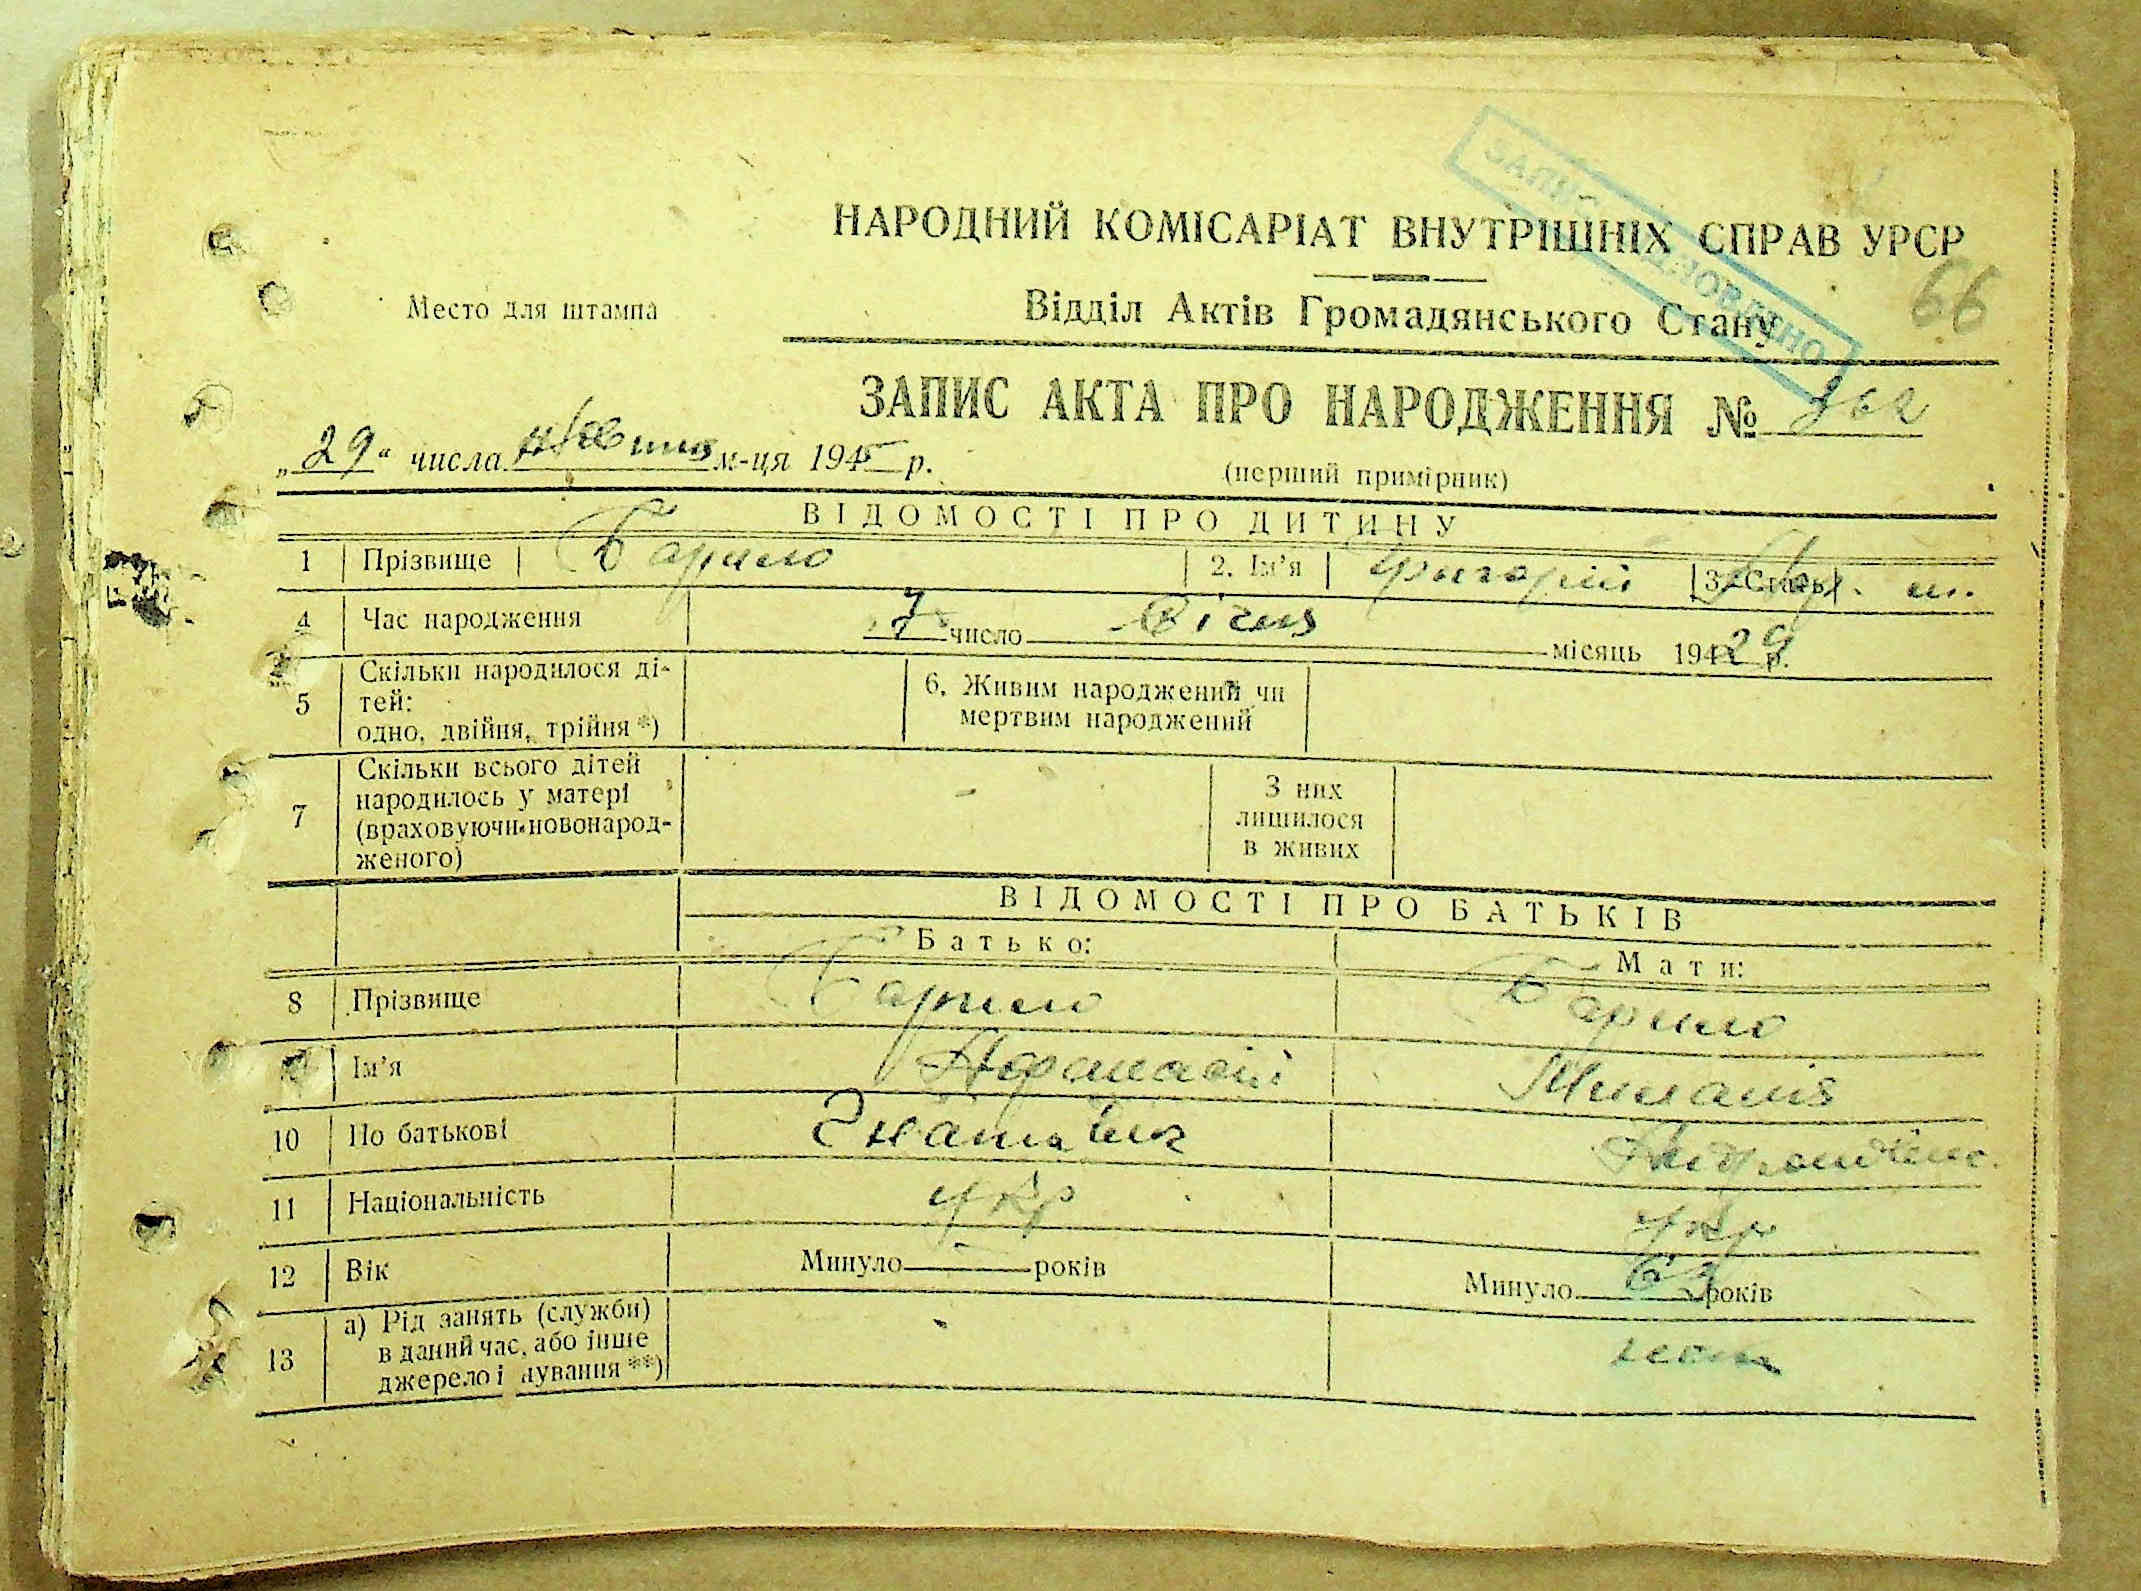 НАРОДНИЙ КОМІСАРІАТ ВНУТРІШНІХ СПРАВ УРСР
66
Место для штампа
Відділ Актів Громадянського Стану
ЗАПИС АКТА ПРО НАРОДЖЕННЯ №
„29“ числа м-ця 1945 р.
(перший примірник)
ВІДОМОСТІ ПРО ДИТИНУ
1 Прізвище Барило 2. Ім’я Григорій 3. Стать
4 Час народження 7 число Січня місяць 29 р.
5 Скільки народилося ді-
тей:
одно, двійня, трійня *)
6. Живим народжений чи
мертвим народжений
7 Скільки всього дітей
народилось у матері
(враховуючи новонарод-
женого)
З них
лишилося
в живих
ВІДОМОСТІ ПРО БАТЬКІВ
Батько: Мати:
8 Прізвище Барило Барило
Ім’я Афанасій Миланія
10 По батькові Гнатович
11 Національність укр укр
12 Вік Минуло років Минуло років
13 а) Рід занять (служби)
в даний час, або інше
джерело і